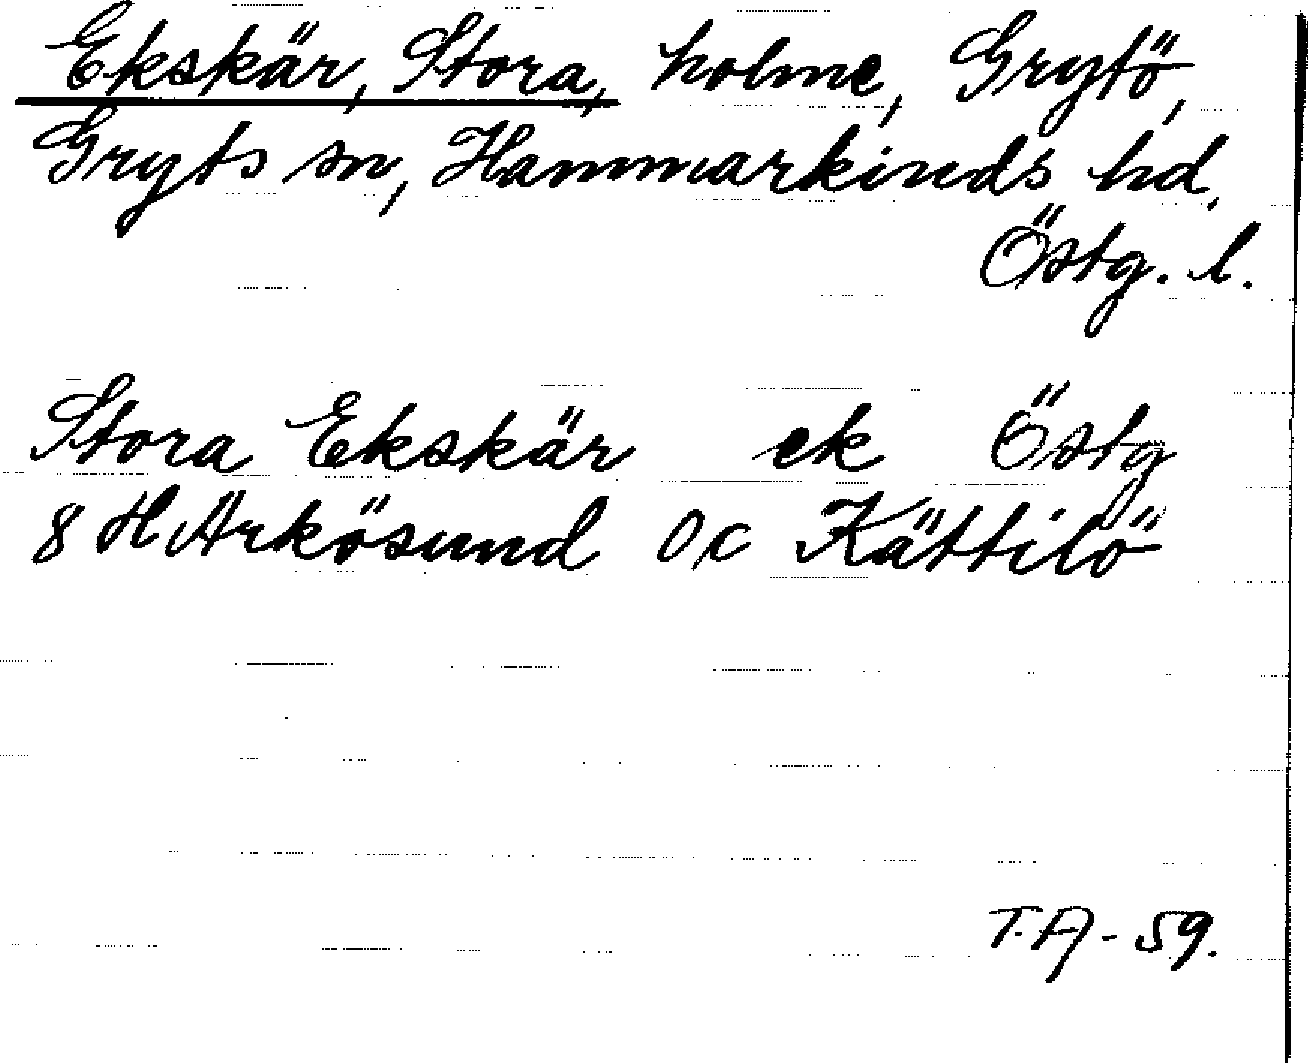 Ekskär, Stora, holme, Grytö,
Gryts sn, Hammarkinds hd,
Östg. l.
Stora Ekskär ek Östg
8 H Arkösund 0,c Kättilö
T.A-59.